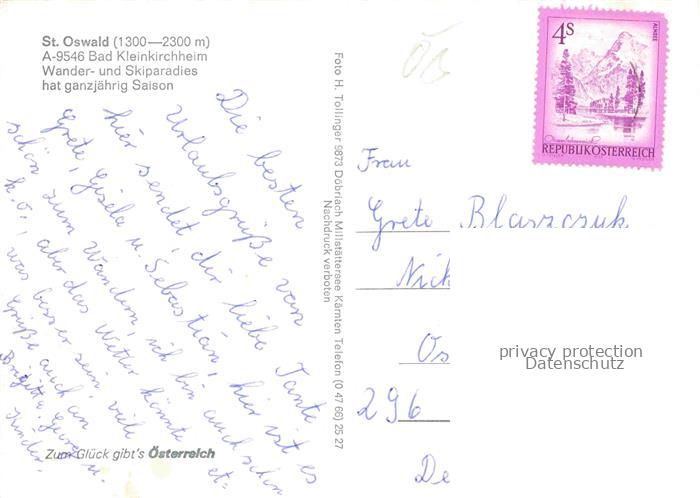 St. Oswald (1300—2300 m)
A-9546 Bad Kleinkirchheim
Wander- und Skiparadies
hat ganzjährig Saison
Die besten
Urlaubsgrüße von
hier sendet dir liebe Tante
Grete, Gisela u. Sebastian, hier ist es
schön zum Wandern, ich bin auch schon
k.o., aber das Wetter könnte et-
was besser sein, viele
Grüße auch an
Brigitte, u.
Kinder.
Zum Glück gibt's Österreich
Foto H. Tollinger 9873 Döbriach Millstättersee Kärnten Telefon (0 47 66) 25 27
Nachdruck verboten
4S
ALMSEE
REPUBLIK ÖSTERREICH
Frau
Grete Blaszczuk
Nich
Os
296
De
privacy protection
Datenschutz